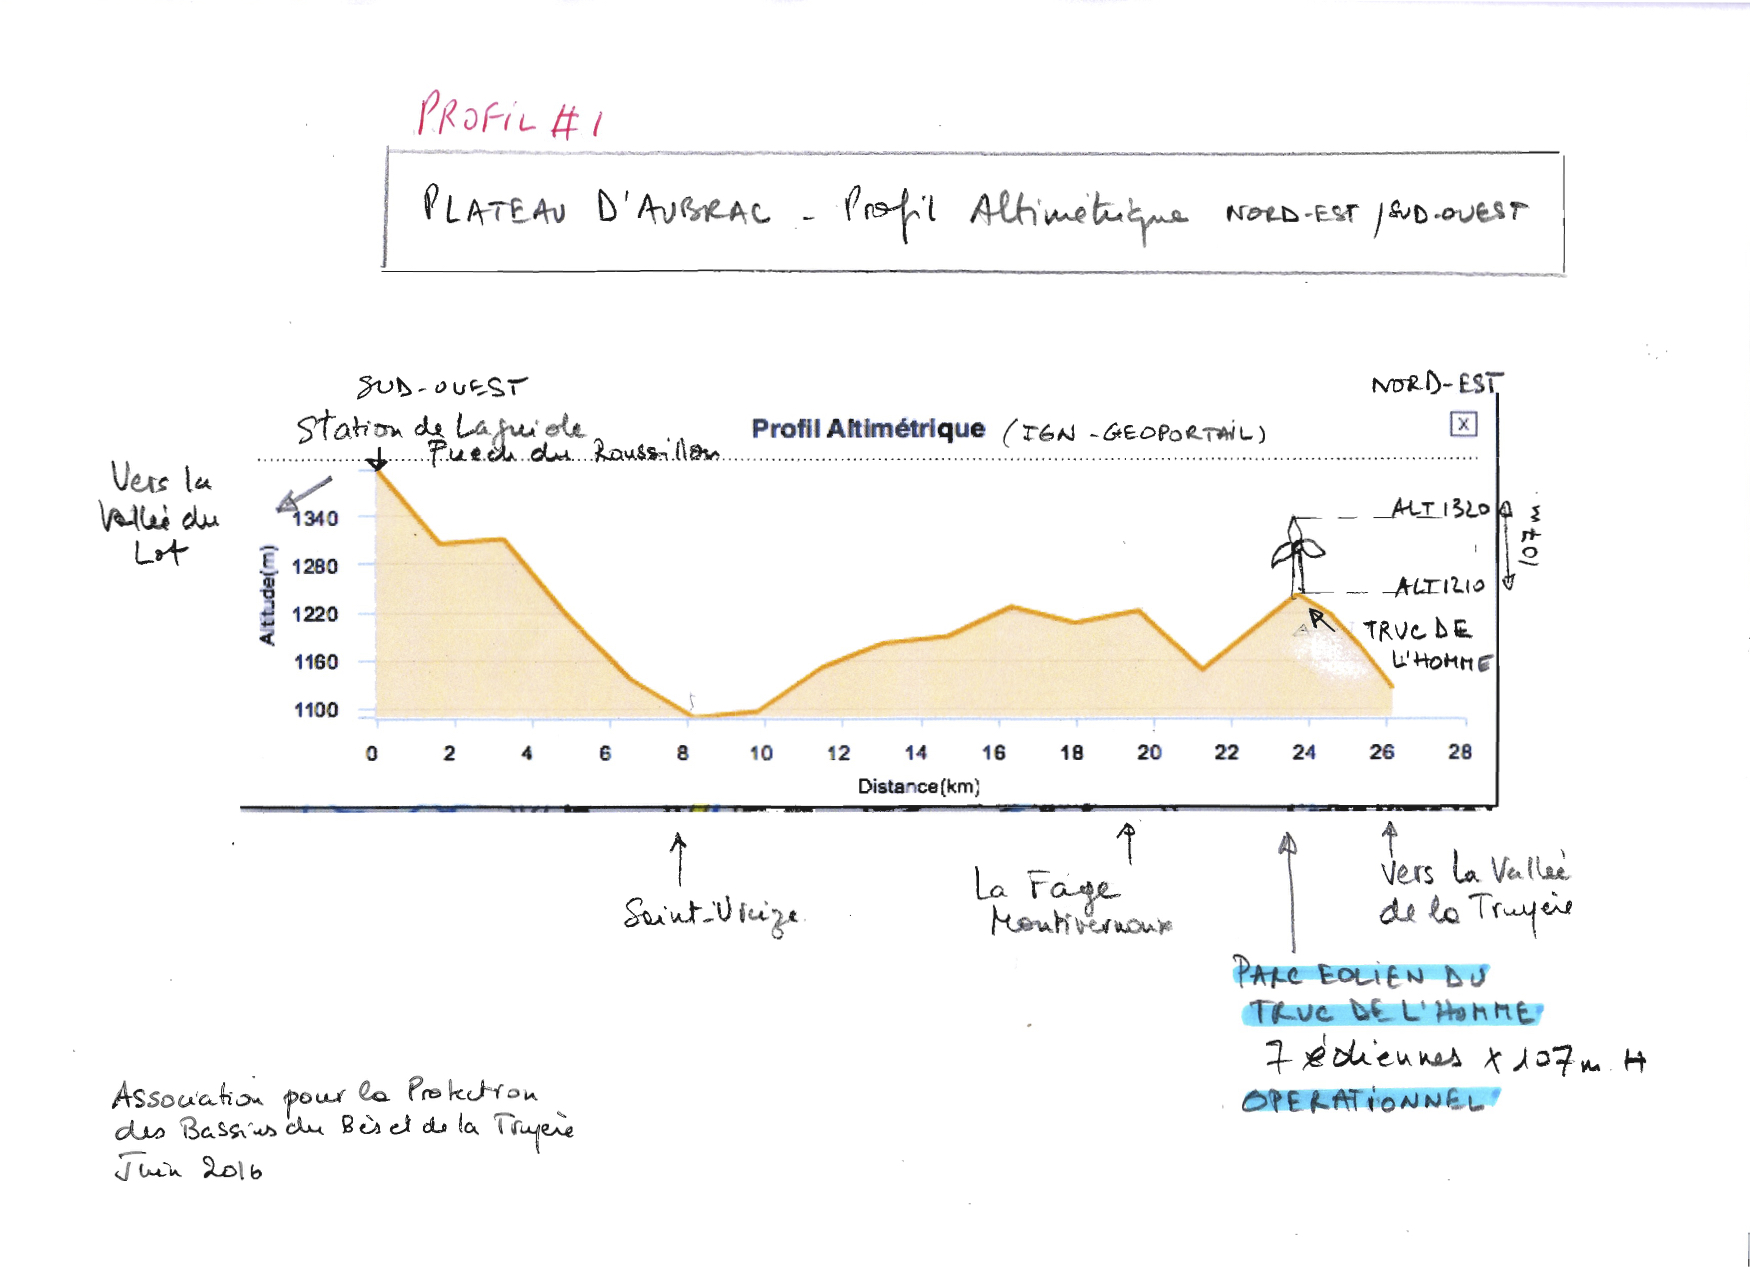 PROFIL #1
PLATEAU D'AUBRAC - Profil Altimétrique NORD-EST / SUD-OUEST
SUD-OUEST
NORD-EST
Station de Laguiole
Puech du Roussillon
Profil Altimétrique (IGN - GEOPORTAIL)
X
Vers la
Vallée du
Lot
Altitude(m)
1340
1280
1220
1160
1100
ALT 1320
107 m
ALT 1210
TRUC DE
L'HOMME
0 2 4 6 8 10 12 14 16 18 20 22 24 26 28
Distance(km)
Saint-Urcize
La Fage
Montivernoux
Vers la Vallée
de la Truyère
PARC EOLIEN DU
TRUC DE L'HOMME
7 éoliennes x 107 m H
OPERATIONNEL
Association pour la Protection
des Bassins du Bès et de la Truyère
Juin 2016